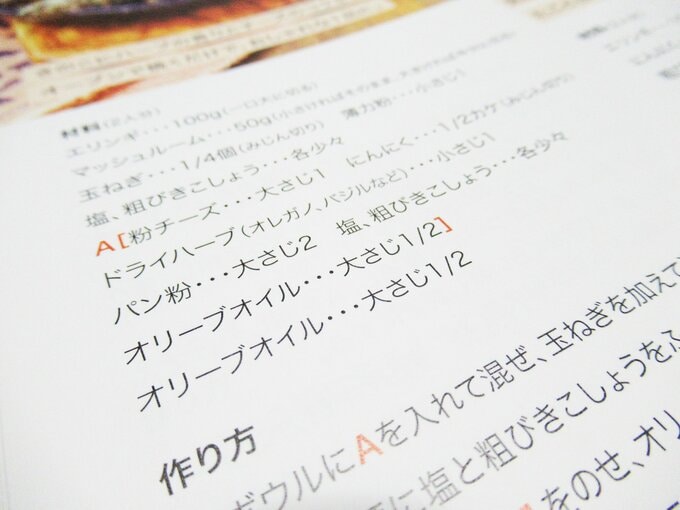 材料(2人分)
エリンギ・・・100g(一口大に切る)
マッシュルーム・・・50g(小さければそのまま、大きければ
玉ねぎ・・・1/4個(みじん切り) 薄力粉・・・小さじ1
塩、粗びきこしょう・・・各少々 にんにく・・・1/2カケ(みじん切り)
A[粉チーズ・・・大さじ1
ドライハーブ(オレガノ、バジルなど)・・・小さじ1
パン粉・・・大さじ2 塩、粗びきこしょう・・・各少々
オリーブオイル・・・大さじ1/2]
オリーブオイル・・・大さじ1/2
作り方
ボウルにAを入れて混ぜ、玉ねぎを加えて
に塩と粗びきこしょうをふ
をのせ、オリ